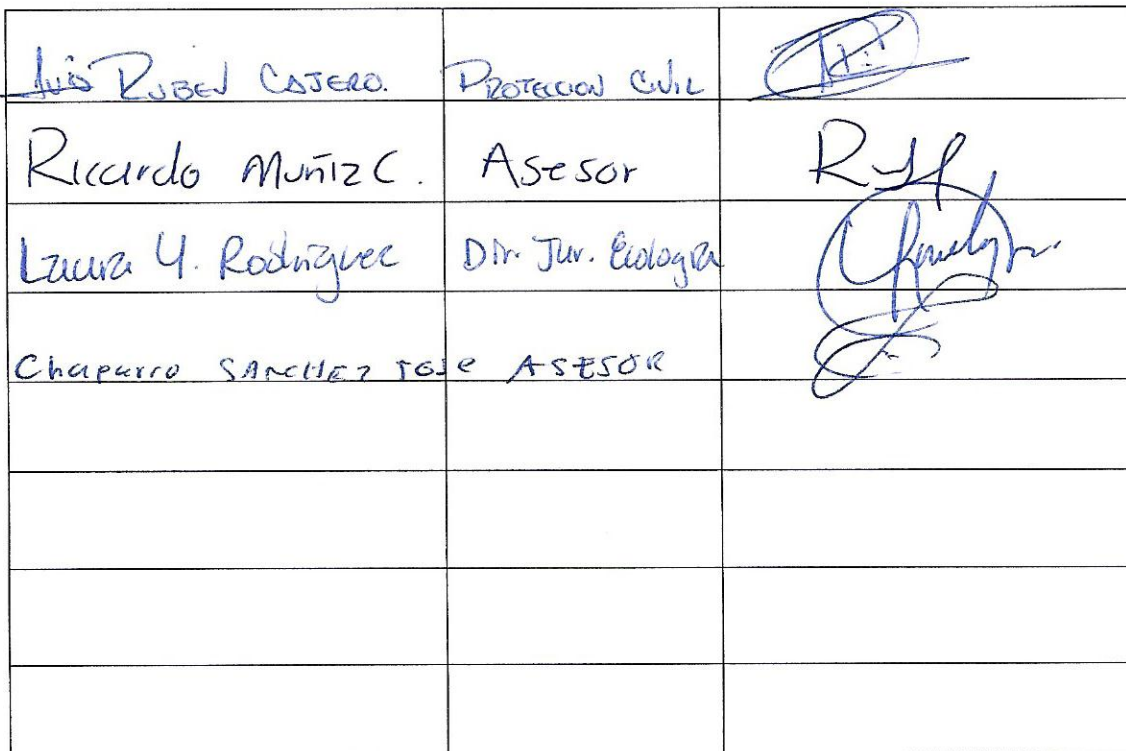 Luis Ruben Cajero. Proteccion Civil
Ricardo Muñiz C. Asesor
Laura Y. Rodriguez Dir. Jur. Ecologia
Chaparro SANCHEZ JOSE ASESOR